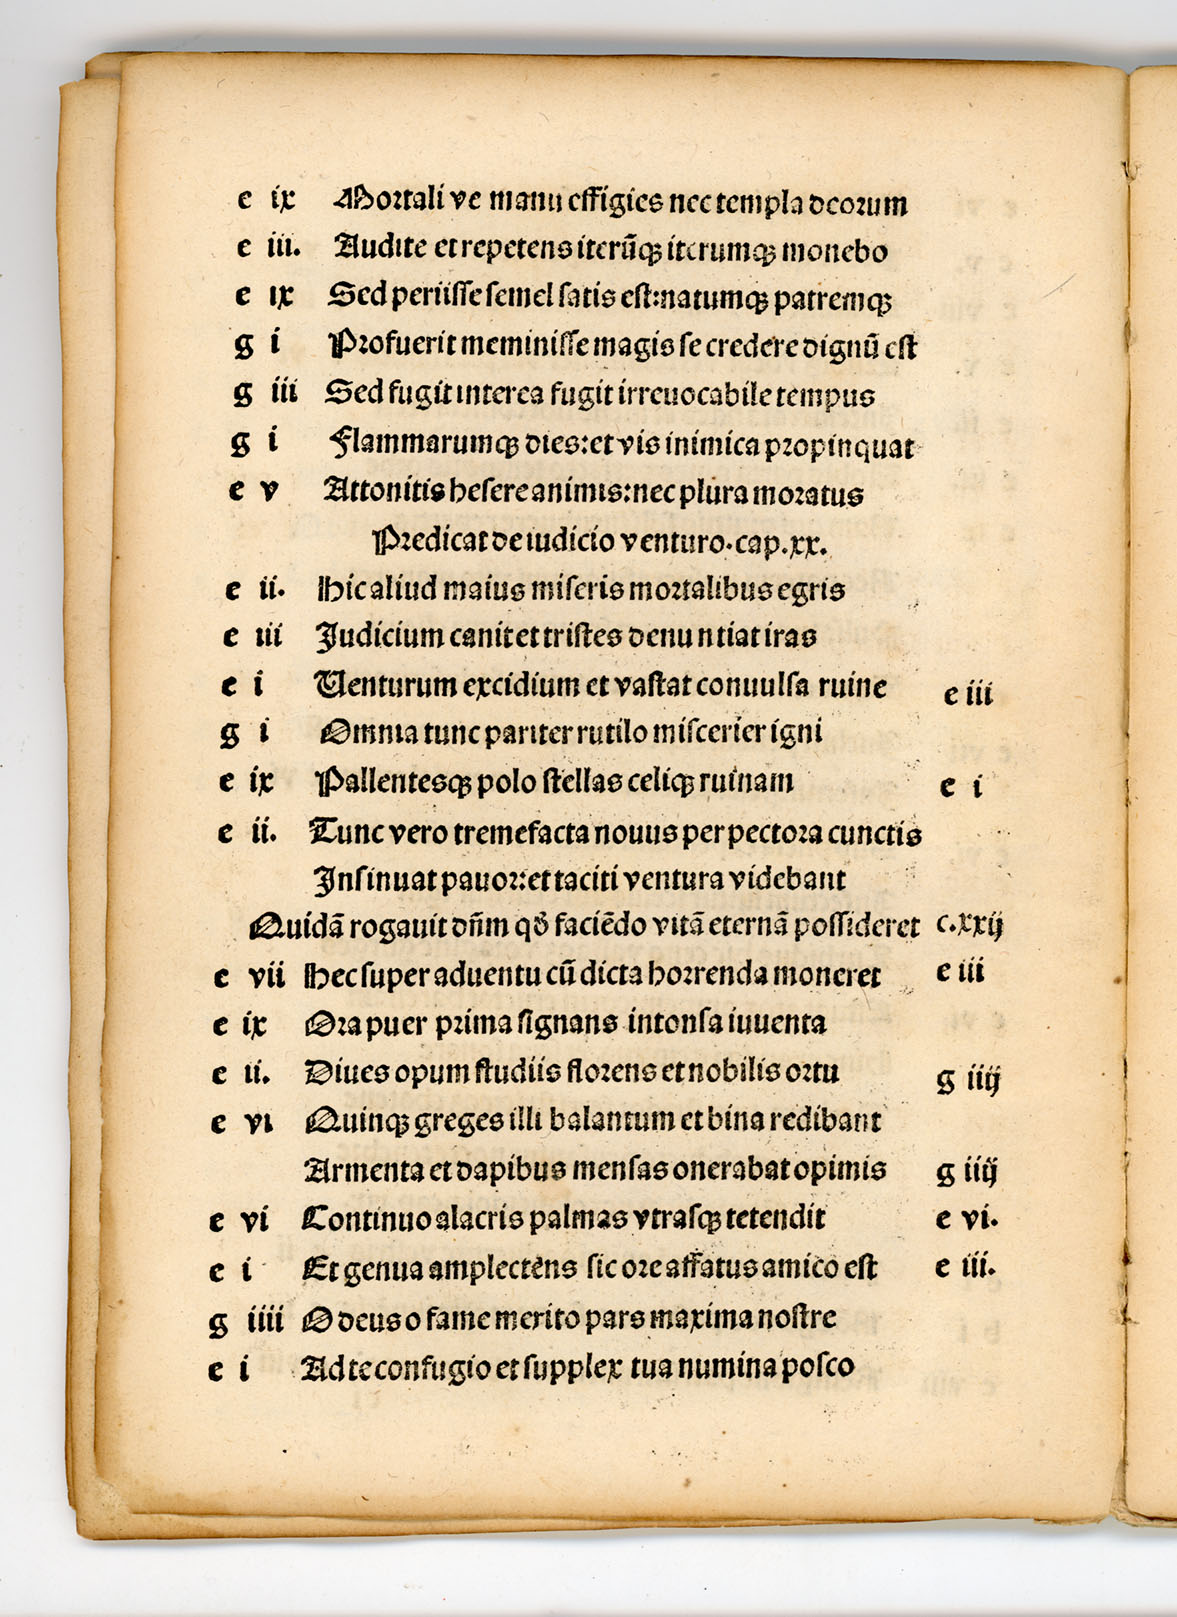 e ix Mortali ve manu effigies nec templa deorum
e iii. Audite et repetens iterūqꝫ iterumqꝫ monebo
e ix Sed periisse semel satis est: natumqꝫ patremqꝫ
g i Profuerit meminisse magis se credere dignū est
g iii Sed fugit interea fugit irreuocabile tempus
g i Flammarumqꝫ dies: et vis inimica propinquat
e v Attonitis hesere animis: nec plura moratus
Predicat de iudicio venturo. cap. xx.
e ii. Hic aliud maius miseris mortalibus egris
e iii Judicium canit et tristes denuntiat iras
e i Uenturum excidium et vastat conuulsa ruine e iii
g i Omnia tunc pariter rutilo miscerier igni
e ix Pallentesqꝫ polo stellas celiqꝫ ruinam e i
e ii. Tunc vero tremefacta nouus per pectora cunctis
Insinuat pauor: et taciti ventura videbant
Quidā rogauit dn̄m qd̄ faciēdo vitā eternā possideret c. xxij
e vii Hec super aduentu cū dicta horrenda moneret e iii
e ix Ora puer prima signans intonsa iuuenta
e ii. Diues opum studiis florens et nobilis ortu g iiij
e vi Quinqꝫ greges illi balantum et bina redibant
Armenta et dapibus mensas onerabat opimis g iiij
e vi Continuo alacris palmas vtrasqꝫ tetendit e vi.
e i Et genua amplectens sic ore affatus amico est e iii.
g iiii O deus o fame merito pars maxima nostre
e i Ad te confugio et supplex tua numina posco